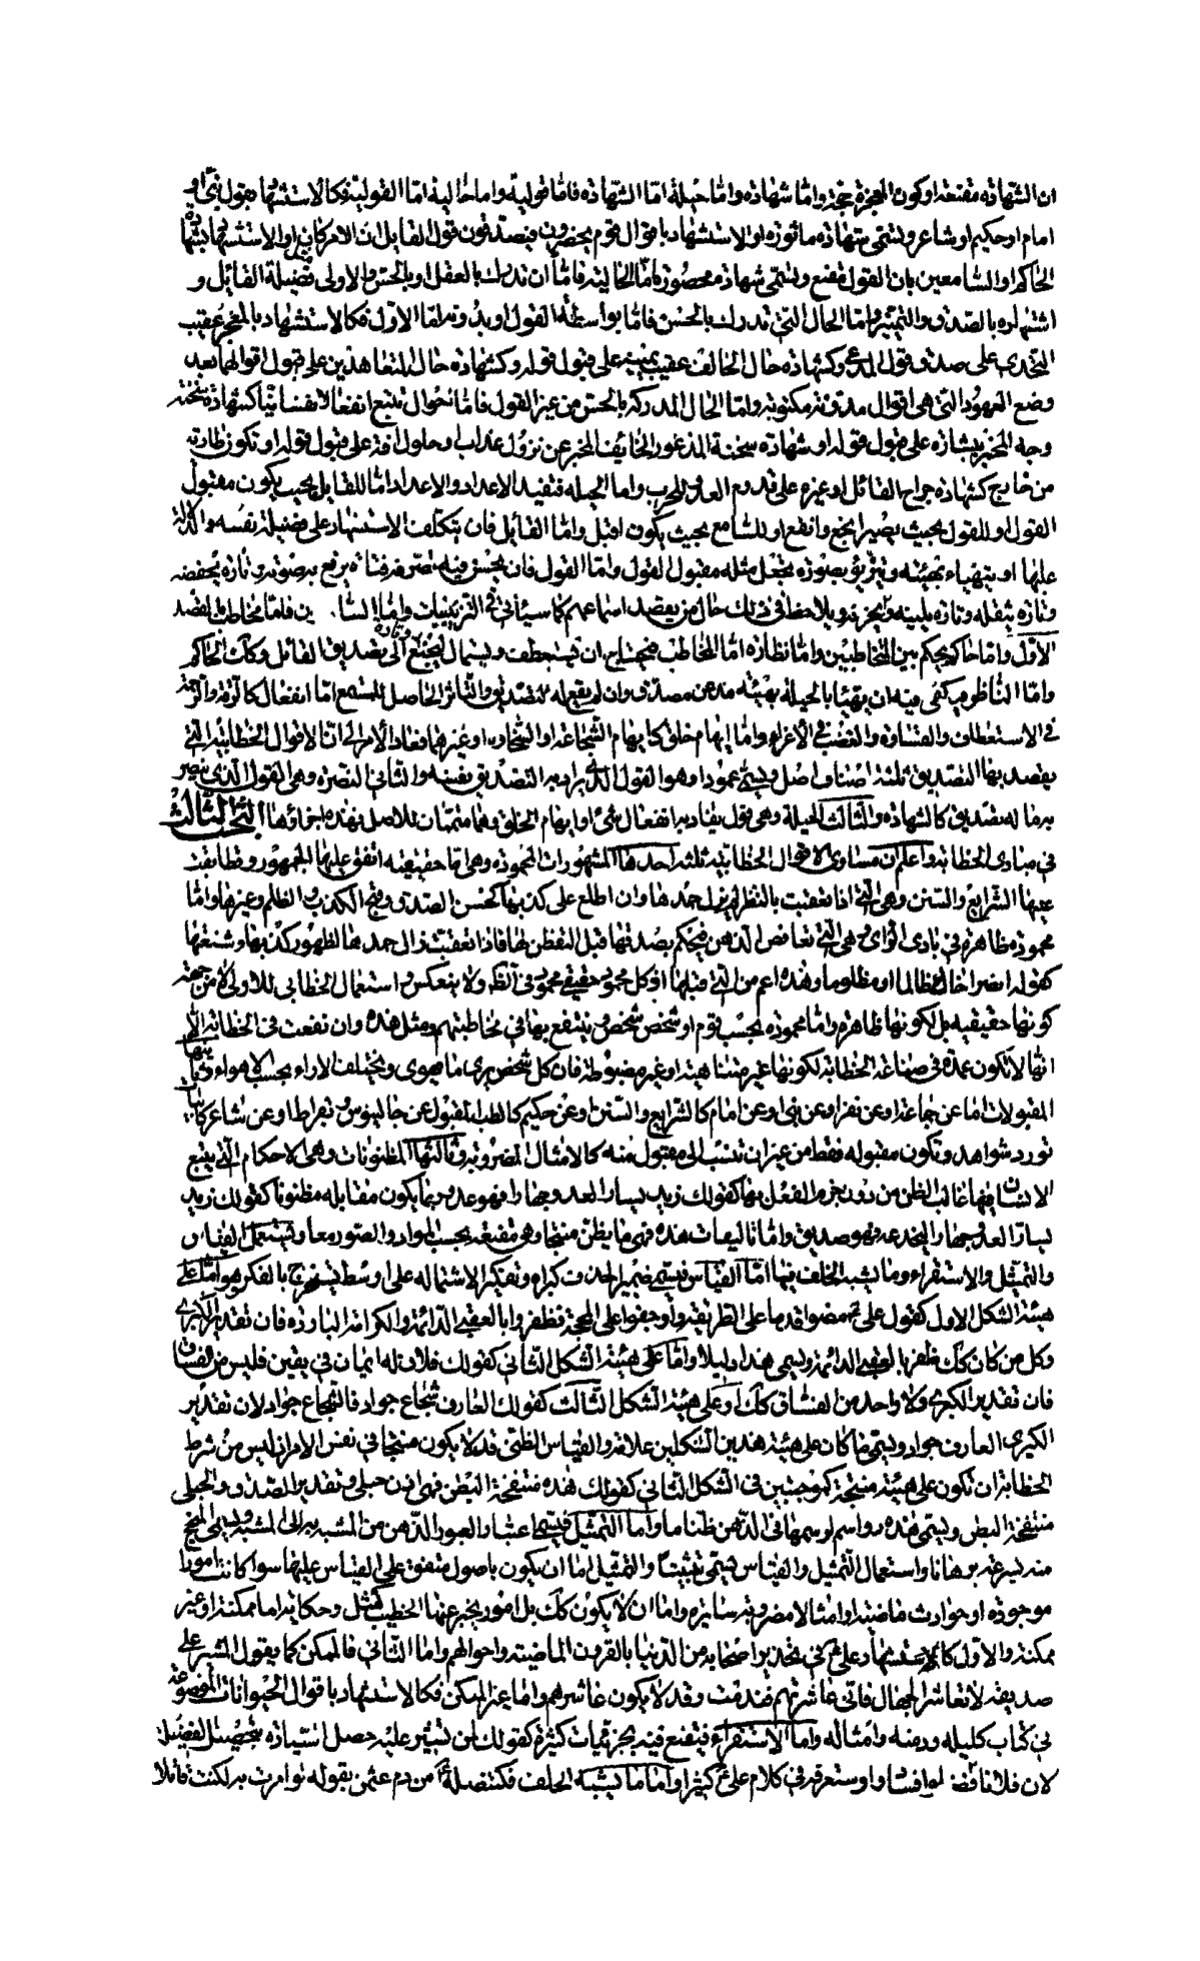 ان الشهادة مقنعة او كون المعجزة حجة واما شهادة واما حيلة اما الشهادة فاما قولية واما حالية اما القولية فكالاستشهاد بقول نبى او
امام او حكيم او شاعر ويسمى شهادة ماثورة او الاستشهاد باقوال قوم يحضرون فيصدقون قول القايل ان الامر كان او الاستشهاد بشهادة
الحاكم او السامعين بان القول مقنع ويسمى شهادة محصورة واما الحالية فاما ان تدرك بالعقل او بالحس والاولى فضيلة القائل و
اشتهاره بالصدق والتميز واما الحال التى تدرك بالحس فاما بواسطة القول او بدونه اما الاول فكالاستشهاد بالمعجز عقيب
التحدى على صدق قول المدعى وكشهادة حال الحالف عقيب يمينه على قبول قوله وكشهادة حال المتعاهدين على قبول اقوالهما بعد
وضع العهود التى هى اقوال مدونة مكتوبة واما الحال المدركة بالحس من غير القول فاما تحوال تتبع انفعالا نفسانيا كشهادة سحنة
وجه المخبر ببشارة على قبول قوله او شهادة سحنة المذعور الخايف المخبر عن نزول عذاب او حلول افة على قبول قوله او تكون طارية
من خارج كشهادة جراح القائل او غيره على قدوم العدو للحرب واما الحيلة فتفيد الاعداد والاعداد اما للقايل بحيث يكون مقبول
القول او للقول بحيث يصير انجع وانفع او للسامع بحيث يكون اقبل واما القايل فان يتكلف الاستشهاد على فضيلة نفسه والدلالة
عليها او يتهياء بهيئة ويتزيى بصورة يجعل مثله مقبول القول واما القول فان يحسن فيه تصرفه فتارة يرفع به صوته وتارة يخفضه
وتارة يثقله وتارة يلينه ويحزنه ويلاحظ فى ذلك حال من يقصد اسماعهم كما سياتى فى التزيينات واما السا . ين فاما مخاطب يقصد
الاول واما حاكم يحكم بين المتخاطبين واما نظارة اما المخاطب فيحتاج ان يستعطف ويستمال ليجنح الى تصديق القائل وكك الحاكم
واما الناظر فيكفى فيه ان يتهيا بالحيلة بهيئة مذعن مصدق وان لم يقع له تصديق والتاثر الحاصل للمستمع اما انفعال كالرقة والرحمة
فى الاستعطاف والقساوة والغضب فى الاغراء واما ايهام خلق كايهام الشجاعة او السخاوة او غيرهما فعاد الامر الى ان الاقوال الخطابية التى
يقصد بها التصديق ثلثة اصناف اصل ويسمى عمودا وهو القول الذى يراد به التصديق بنفسه والثانى النصرة وهى القول الذى ينصر
به ما له تصديق كالشهادة والثالث الحيلة وهى قول يفاد به انفعال شىء او ايهام الخلق وهما متممتان للاصل فهذه اجزاؤها البحث الثالث
فى مبادى الخطابة واعلم ان مبادى الاقوال الخطابية ثلثة احدها المشهورات المحمودة وهى اما حقيقية اتفق عليها الجمهور وتطابقت
عليها الشرايع والسنن وهى التى اذا تعقبت بالنظر لم يزل حمدها وان اطلع على كذبها كحسن الصدق وقبح الكذب والظلم وغيرها واما
محمودة ظاهرة فى بادى الراى وهى التى تغافص الذهن فيحكم بصدقها قبل التفطن لها فاذا تعقبت زال حمدها لظهور كذبها وشنعتها
كقوله انصر اخاك ظالما او مظلوما وهذه اعم من التى قبلها اذ كل محمود حقيقى محمود فى الظ ولا ينعكس واستعمال الخطابى للاولى لا من جهة
كونها حقيقية بل لكونها ظاهرة واما محمودة بحسب قوم او شخص شخص فينتفع بها فى مخاطبتهم ومثل هذه وان نفعت فى الخطابة الا
انها لا تكون عمدة فى صناعة الخطابة لكونها غير متناهية او غير مضبوطة فان كل شخص يرى ما يهوى ويختلف الاراء بحسب الاهواء وثانيها
المقبولات اما عن جماعة او عن نفر او عن نبى او عن امام كالشرايع والسنن او عن حكيم كالطب المقبول عن جالينوس وبقراط او عن شاعر كابيات
تورد شواهد وتكون مقبولة فقط من غير ان تنسب الى مقبول منه كالامثال المضروبة وثالثها المظنونات وهى الاحكام التى يتبع
الانسان فيها غالب الظن من دون جزم العقل بها كقولك زيد يسار العدو جهارا فهو عدو وربما يكون مقابله مظنونا كقولك زيد
يسار العدو جهارا ليخدعه فهو صديق واما تاليفات هذه فهى ما يظن منتجا وهى مقنعة بحسب المواد والصور معا ويستعمل القياس
والتمثيل والاستقراء وما يشبه الخلف فيها اما القياس فيسمى ضمير الحذف كبراه وتفكيرا لاشتماله على اوسط يستخرج بالفكر وهو اما على
هيئة الشكل الاول كقول على ع مضوا قدما على الطريقة واوجفوا على المحجة فظفروا بالعقبى الدائمة والكرامة الباردة فان تقدير الكبرى
وكل من كان كك ظفر بالعقبى الدائمة ويسمى هذا دليلا واما على هيئة الشكل الثانى كقولك فلان له ايمان فى يقين فليس من الفساق
فان تقدير الكبرى ولا واحد من الفساق كك او على هيئة الشكل الثالث كقولك العارف شجاع جواد فالشجاع جواد لان تقدير
الكبرى العارف جواد ويسمى ما كان على هيئة هذين الشكلين علامة والقياس الظنى قد لا يكون منتجا فى نفس الامر اذ ليس من شرط
الخطابة ان تكون على هيئة منتجة كموجبتين فى الشكل الثانى كقولك هذه منتفخة البطن فهى اذن حبلى وتقدير الصدق والحبلى
منتفخة البطن ويسمى هذه رواسم لوسمها فى الذهن ظنا ما واما التمثيل فيسمى اعتبارا لعبور الذهن من المشبه به الى المشبه ويسمى المنجح
منه بسرعة برهانا واستعمال التمثيل والقياس يسمى تثبيتا والتمثيل اما ان يكون باصول متفق على القياس عليها سوا كانت امورا
موجودة او حوادث ماضية او امثالا مضروبة سايرة واما ان لا يكون كك بل امور يخبر عنها الخطيب كمثل وحكاية اما ممكنة او غير
ممكنة والاول كالاستشهاد على ع فى تحذير اصحابه من الدنيا بالقرون الماضية واحوالهم واما الثانى فالممكن كما يقول المشير على
صديقه لا تعاشر الجهال فانى عاشرتهم فندمت وقد لا يكون عاشرهم واما غير الممكن فكالاستشهاد باقوال الحيوانات الموضوعة
فى كتاب كليلة ودمنة وامثاله واما الاستقراء فيقنع فيه بجزئيات كثيرة كقولك لمن تشير عليه حصل السيادة بتحصيل الفضيلة
لان فلانا وفلانا سادا وستعرفه فى كلام على ع كثيرا واما ما يشبه الخلف فكتنصله ع من دم عثمن بقوله لو امرت به لكنت قاتلا